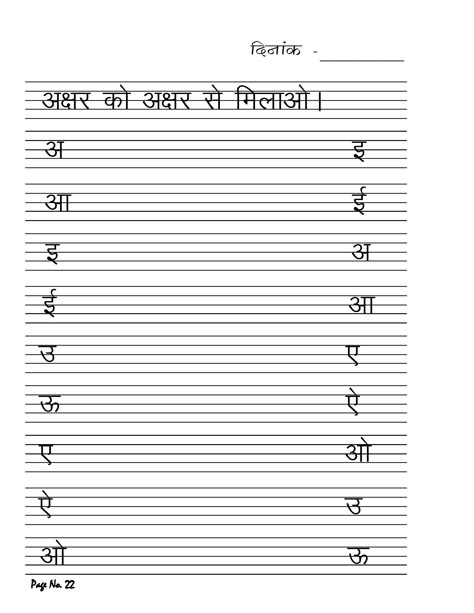 दिनांक -__________
अक्षर को अक्षर से मिलाओ।
अ इ
आ ई
इ अ
ई आ
उ ए
ऊ ऐ
ए ओ
ऐ उ
ओ ऊ
Page No. 22